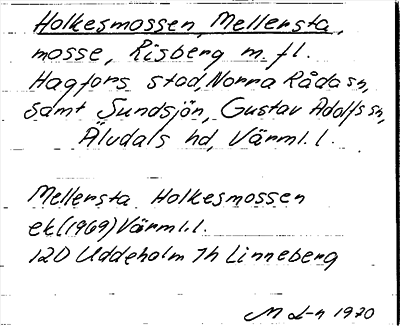 Holkesmossen, Mellersta,
mosse, Risberg m. fl.
Hagfors stad, Norra Råda sn,
samt Sundsjön, Gustav Adolfs sn,
Älvdals hd, Värml. l.
Mellersta Holkesmossen
ek (1969) Värml.l.
12D Uddeholm 7h Linneberg
M L-n 1970